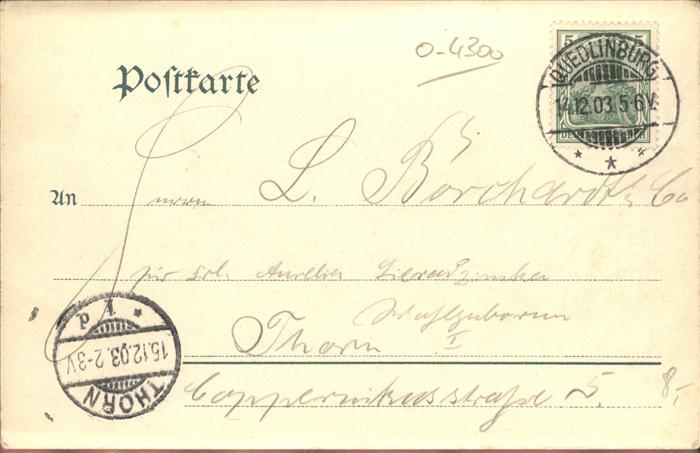 0-4300
5 5
QUEDLINBURG
14.12.03.5-6V.
* * *
Postkarte
An Herrn L. Borchardt & Co
für Frl. Aurelia
Wohlgeboren
Thorn I
Coppernikusstraße 5.
8,-
THORN
15.12.03. 2-3V